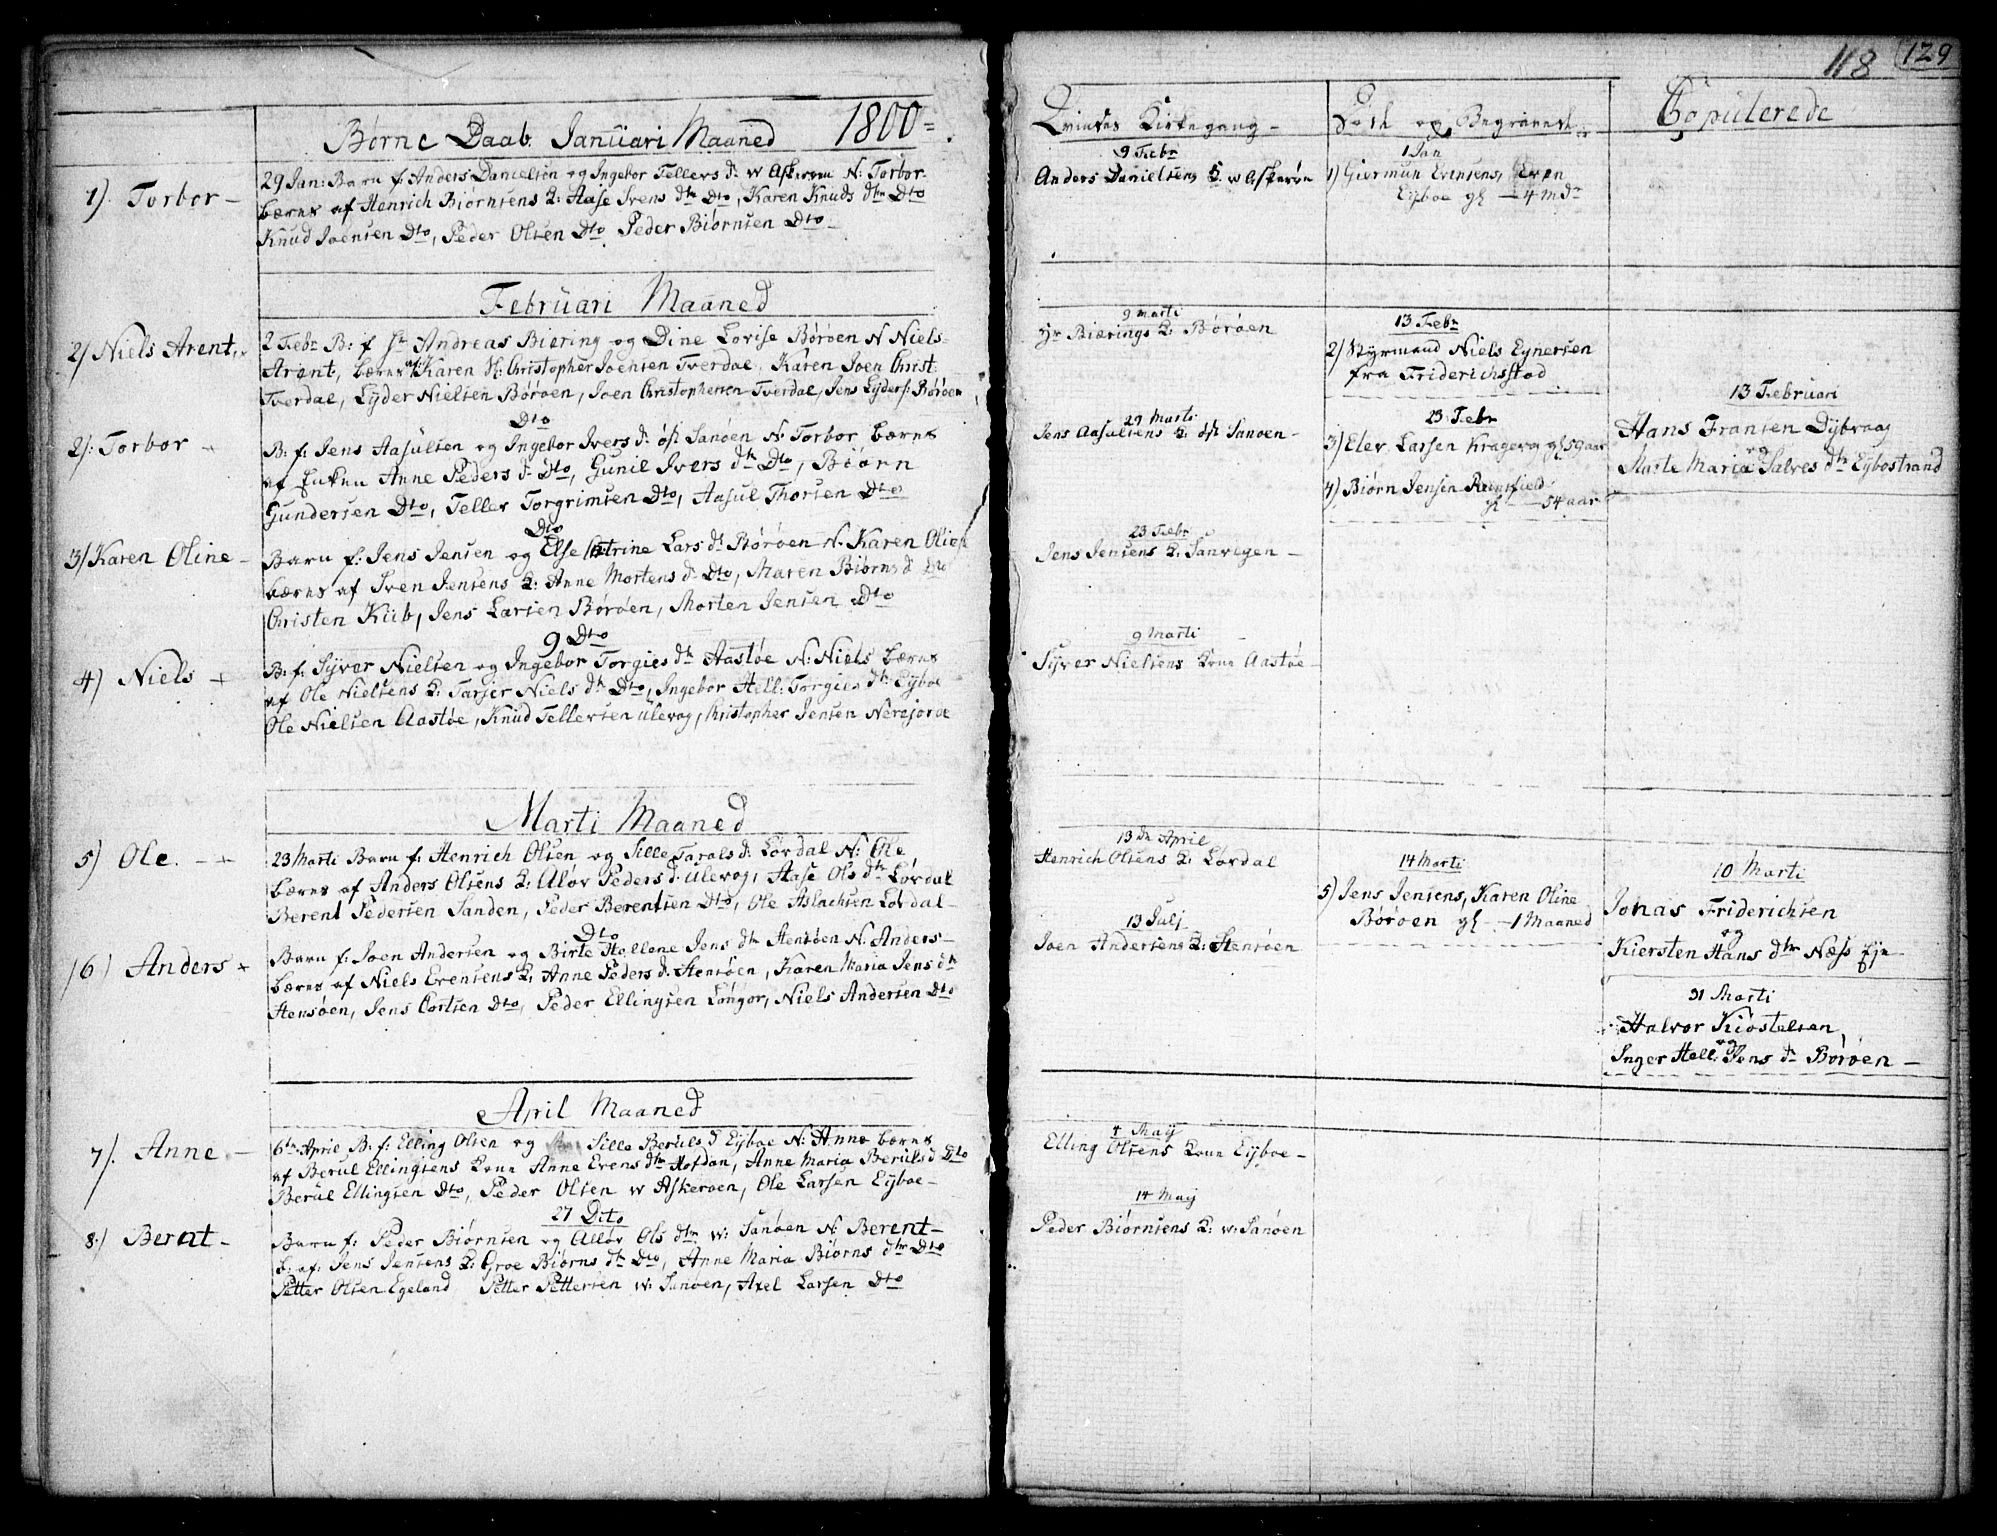 Børne Daab. Januari Maaned 1800=
1). Torbor –
29 Jan: Barn f: Anders Danielsen og Ingebor Tellers d: w Askerøen N: Torbor
bæres af Henrich Biørnsens Q: Aase Ivens dtr Dto, Karen Knuds dtr Dto
Knud Joensen Dto, Peder Olsen Dto Peder Biørnsen Dto –
Februari Maaned
2/ Niels Arent
2 Febr B: f Hr Andreas Biering og Dine Lovise Børøen N Niels
Arent, bæres af Karen Sl: Christopher Joensen Tverdal, Karen Joen Christ:
Tverdal, Lyder Nielsen Børøen, Joen Christophersen Tverdal, Jens Lyders: Børøen
Dto
2/. Torbor –
B: f: Jens Aasulsen og Ingebor Ivers d: øst Sanøen N: Torbor bæres
af Enken Anne Peders d: Dto, Gunil Ivers dtr Dto, Biørn
Gundersen Dto, Tellef Torgrimsen Dto, Aasul Thorsen Dto
Dto
3/ Karen Oline –
Barn f: Jens Jensen og Else Catrine Lars dr Børøen N: Karen Oline
bæres af Sven Jensens Q: Anne Mortens d: Dto, Maren Biørns d: Dto
Christen Kub, Jens Larsen Børøen, Morten Jensen Dto
9 Dto
4) Niels +
B: f: Syver Nielsen og Ingebor Torgies dtr Aastøe N: Niels bæres
af Ole Nielsens Q: Tarjer Niels dtr Dto, Ingebor Hell: Torgies dtr Eyboe
Ole Nielsen Aastøe, Knud Tellefsen Ulevog, Christopher Jensen Nerejorde
Marti Maaned
5) Ole. – +
23 Marti Barn f: Henrich Olsen og Sille Tarals d: Lørdal N: Ole
bæres af Anders Olsens Q: Aløv Peders d: Ulevog, Aase Ols dtr Lørdal
Berent Pedersen Sanden, Peder Berentsen Dto, Ole Aslachsen Lørdal –
Dto
6) Anders +
Barn f: Joen Andersen og Birte Hellene Jens dtr Stensøen N: Anders –
bæres af Niels Evensens Q: Anne Peders d: Stensøen, Karen Maria Jens dtr
Stensøen, Jens Cortsen Dto, Peder Ellingsen Longør, Niels Andersen Dto
April Maaned
7/. Anne –
6te April B: f: Elling Olsen og Sille Beruls d Eyboe N: Anne bæres
af Berul Ellingsens Kone Anne Evens dtr Hofdan, Anne Maria Beruls d Dto
Berul Ellingsen Dto, Peder Olsen w Askerøen, Ole Larsen Eyboe –
27 Dito
8.) Berent –
Barn f: Peder Biørnsen og Alløv Ols dtr w: Sanøen N: Berent –
b: af: Jens Jensens Q: Groe Biørns dtr Dto, Anne Maria Biørns dtr Dto
Petter Olsen Egeland Petter Pettersen w: Sanøen, Axel Larsen Dto
118 129
Qvindes Kirkegang –
9 Febr
Anders Danielsens Q w Askerøn
9 Marti
Hr Bierings Q: Børøen
29 Marti
Jens Aasulsens Q: øst Sanøen –
23 Febr
Jens Jensens Q: Sanvigen –
9 Marti
Syver Nielsens Kone Aastøe –
13 de April
Henrich Olsens Q: Lørdal
13 Julj
Joen Andersens Q: Stensøen
4 Maij
Elling Olsens Kone Eyboe –
14 Maij
Peder Biørnsens Q: w: Sanøen
Døde og Begravede
1 Jan
1) Giermun Evensens, Even
Eyboe gl – 4 mdr
13 Febr
2) Styrmand Niels Eynersen
fra Friderichsstad
23 Febr
3) Elev Larsen Kragerø gl 59 aar
4) Biørn Jensen
gl – 54 aar
14 Marti
5) Jens Jensens, Karen Oline
Børøen gl – 1 Maaned
Copulerede
13 Februari
Hans Fransen Dybvaag
og
Marte Maria Salves dtr Eybostrand
10 Marti
Jonas Friderichsen
og
Kiersten Hans dtr Næss Eje
31 Marti
Halvor Kiostelsen
og
Inger Hell. Jens dr Børøen –